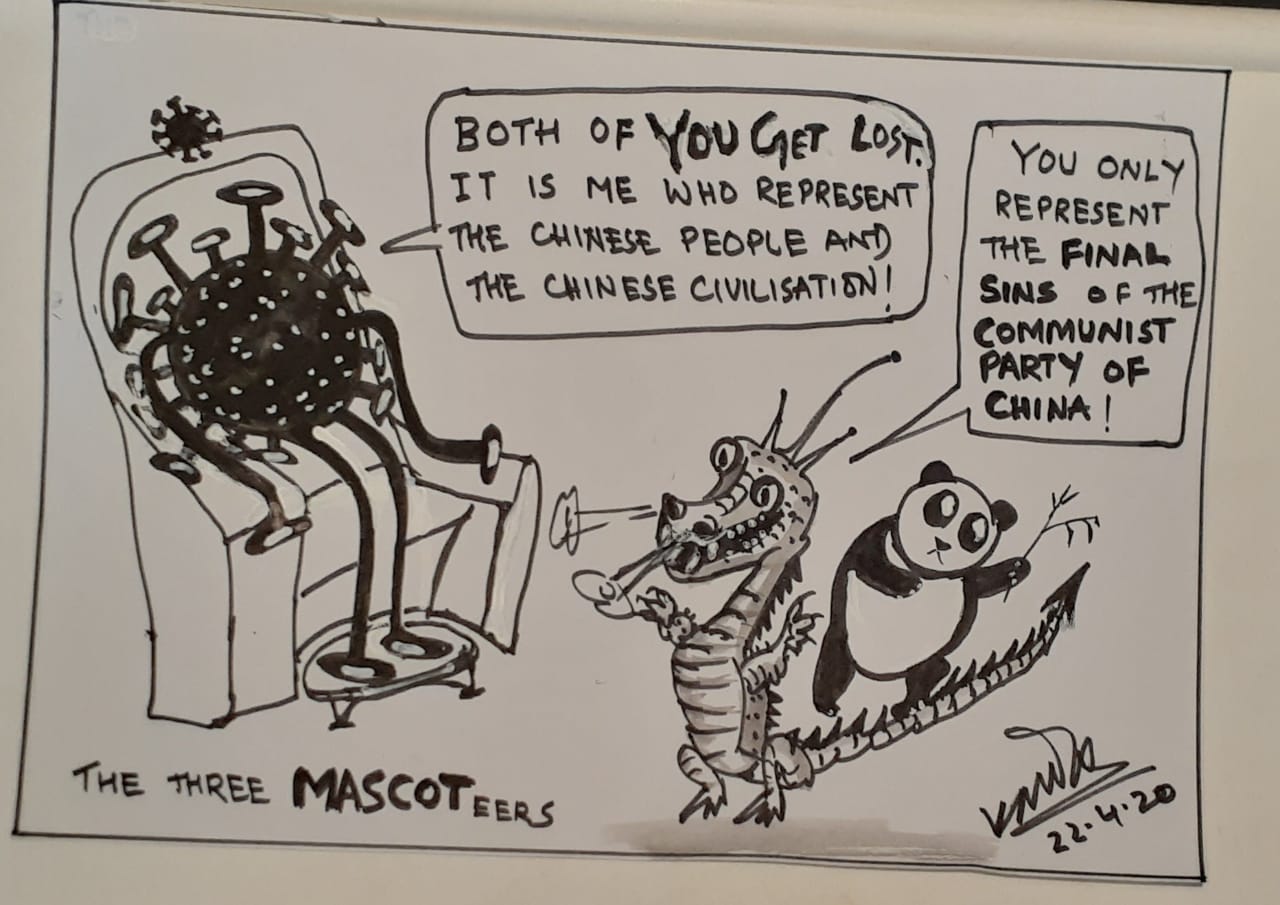 BOTH OF YOU GET LOST.
IT IS ME WHO REPRESENT
THE CHINESE PEOPLE AND
THE CHINESE CIVILISATION!
YOU ONLY
REPRESENT
THE FINAL
SINS OF THE
COMMUNIST
PARTY OF
CHINA!
THE THREE MASCOTEERS
22.4.20